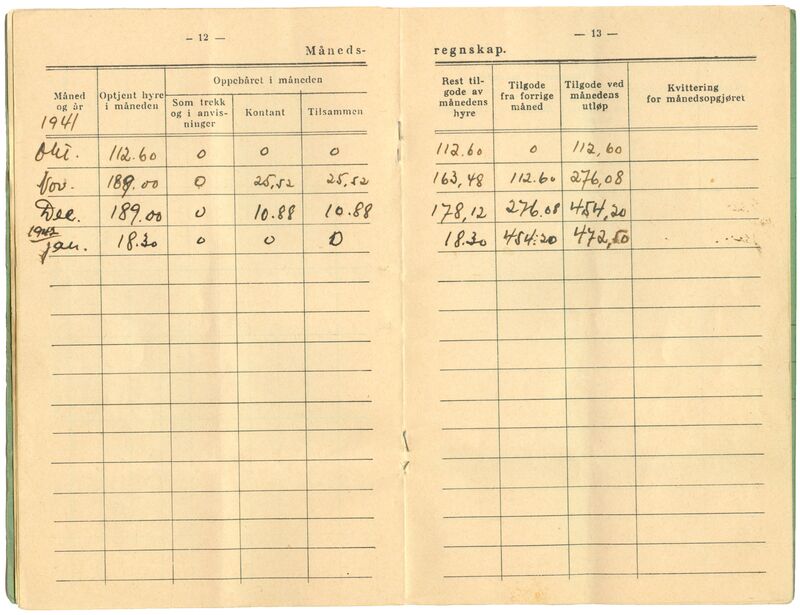 – 12 —
Måneds-
Måned og år
1941
Optjent hyre i måneden
Oppebåret i måneden
Som trekk og i anvis-ninger
Kontant
Tilsammen
Okt. 112.60 0 0 0
Nov. 189.00 0 25,52 25,52
Dec. 189.00 0 10.88 10.88
1942
jan. 18.30 0 0 0
— 13 —
regnskap.
Rest til-gode av månedens hyre
Tilgode fra forrige måned
Tilgode ved månedens utløp
Kvittering for månedsopgjøret
112.60 0 112,60
163,48 112.60 276,08
178,12 276.08 454,20
18.30 454.20 472,50